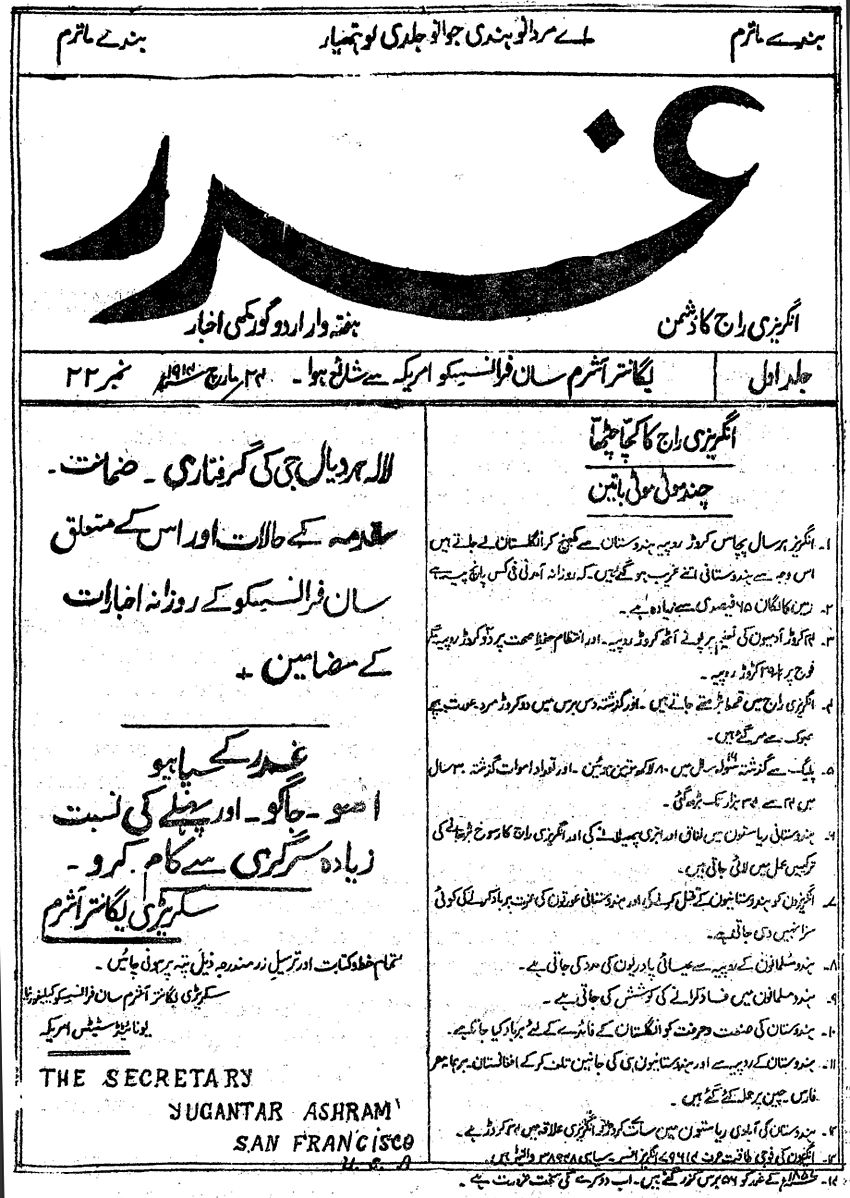 بندے ماترم
اے مردانو ہندی جوانو جلدی لو ہتھیار
بندے ماترم
غدر
انگریزی راج کا دشمن
ہفتہ وار اردو گورمکھی اخبار
جلد اول
یگانتر آشرم سان فرانسیسکو امریکہ سے شائع ہوا ۔
۲۴ مارچ ۱۹۱۴
نمبر ۲۲
انگریزی راج کا کچا چٹھا
چند موٹی موٹی باتیں
۱۔ انگریز ہر سال پچاس کروڑ روپیہ ہندوستان سے کھینچ کر انگلستان لے جاتے ہیں
اس وجہ سے ہندوستانی اتنے غریب ہو گئے ہیں۔ کہ روزانہ آمدنی فی کس پانچ پیسہ ہے
۲۔ زمین کا لگان ۶۵ فیصدی سے زیادہ ہے۔
۳۔ ۲۴ کروڑ آدمیوں کی تعلیم پر پونے آٹھ کروڑ روپیہ۔ اور انتظام حفظ صحت پر دو کروڑ روپیہ مگر
فوج پر ۲۹½ کروڑ روپیہ ۔
۴۔ انگریزی راج میں قحط بڑھتے جاتے ہیں ۔ اور گذشتہ دس برس میں دو کروڑ مرد عورت بچے
بھوک سے مر گئے ہیں۔
۵۔ پلیگ سے گذشتہ سولہ سال میں ۸۰ لاکھ موتیں ہوئیں ۔ اور تعداد اموات گذشتہ ۳۰ سال
میں ۲۴ سے ۳۴ ہزار تک بڑھ گئی ۔
۶۔ ہندوستانی ریاستوں میں نفاق اور ابتری پھیلانے کی اور انگریزی راج کا رسوخ بڑھانے کی
ترکیبیں عمل میں لائی جاتی ہیں۔
۷۔ انگریزوں کو ہندوستانیوں کے قتل کرنے کی اور ہندوستانی عورتوں کی عزت برباد کرنے کی کوئی
سزا نہیں دی جاتی ہے۔
۸۔ ہندو مسلمانوں کے روپیہ سے عیسائی پادریوں کی مدد کی جاتی ہے۔
۹۔ ہندو مسلمانوں میں فساد کرانے کی کوشش کی جاتی ہے ۔
۱۰۔ ہندوستان کی صنعت و حرفت کو انگلستان کے فائدے کے لئے برباد کیا جا چکا ہے۔
۱۱۔ ہندوستان کے روپیہ سے اور ہندوستانیوں ہی کی جانیں تلف کر کے افغانستان۔ برہما۔ مصر
فارس۔ چین پر حملے کئے گئے ہیں ۔
۱۲۔ ہندوستان کی آبادی ریاستوں میں سات کروڑ اور انگریزی علاقہ میں ۲۴ کروڑ ہے۔
۱۳۔ انگریزوں کی فوجی طاقت صرف ۷۹۶۱۴ انگریز افسر و سپاہی ۳۸۹۴۸ والنٹیر ہیں۔
۱۴۔ ۱۸۵۷ کے غدر کو ۵۶ برس گزر گئے ہیں۔ اب دوسرے کی سخت ضرورت ہے ۔
لالہ ہردیال جی کی گرفتاری ۔ ضمانت ۔
مقدمہ کے حالات اور اس کے متعلق
سان فرانسیسکو کے روزانہ اخبارات
کے مضامین +
غدر کے سپاہیو
اٹھو ۔ جاگو ۔ اور پہلے کی نسبت
زیادہ سرگرمی سے کام کرو ۔
سکریٹری یگانتر آشرم
تمام خط و کتابت اور ترسیل زر مندرجہ ذیل پتہ پر ہونی چاہئیں ۔
سکریٹری یگانتر آشرم سان فرانسیسکو کیلیفورنیا
یونائیٹڈ سٹیٹس امریکہ
THE SECRETARY
YUGANTAR ASHRAM
SAN FRANCISCO
U.S.A